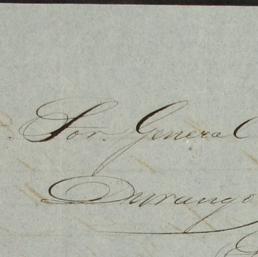 Sor. General
Durango